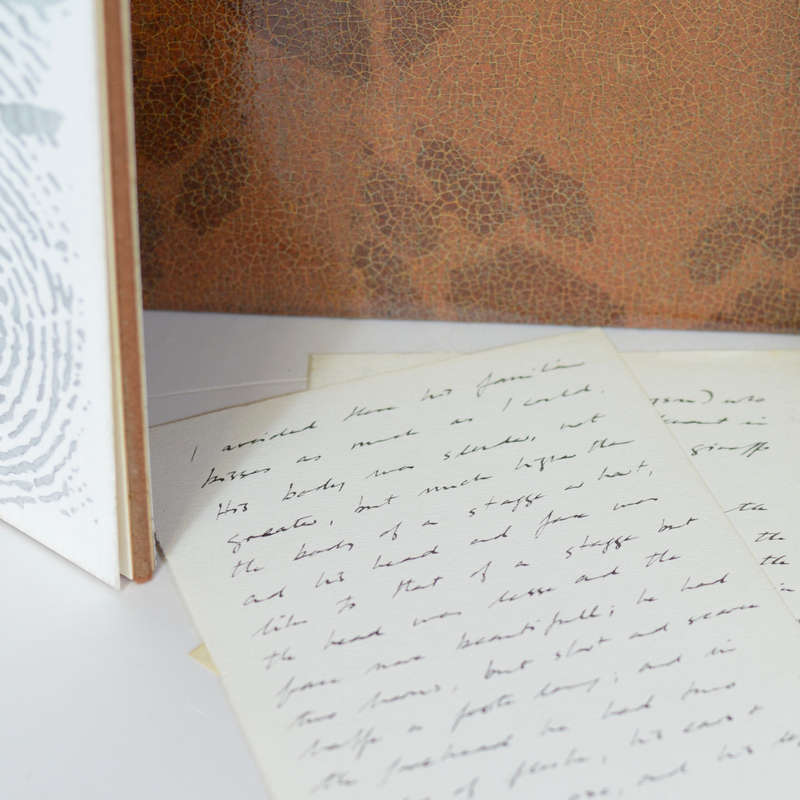 I avoided them his familiar
kisses as much as I could.
His body was slender, not
greater, but much higher then
the body of a stagge or hart,
and his head and face was
like to that of a stagge but
the head was lesse and the
face more beautifull; he had
two hornes, but short and scarce
halfe a foote long; and in
the forehead he had two
of fleshe, his ears &
are, and his
who
in
giraffe
the
the
the
in